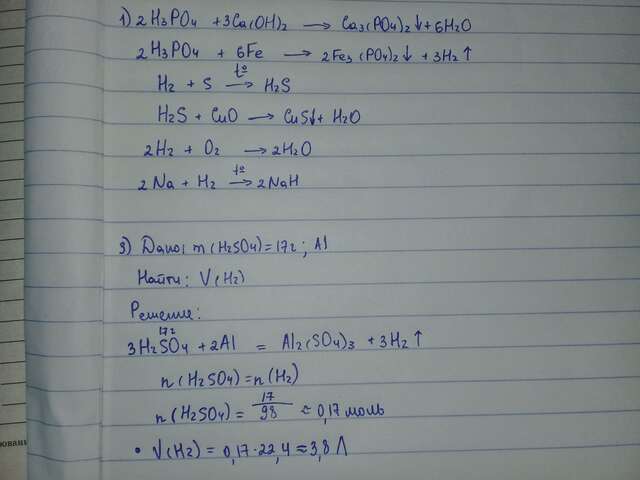 1) 2H3PO4 + 3Ca(OH)2 → Ca3(PO4)2↓ + 6H2O
2H3PO4 + 6Fe → 2Fe3(PO4)2↓ + 3H2↑
t°
H2 + S → H2S
H2S + CuO → CuS↓ + H2O
2H2 + O2 → 2H2O
t°
2Na + H2 → 2NaH
3) Дано: m(H2SO4)=17г; Al
Найти: V(H2)
Решение:
17г
3H2SO4 + 2Al = Al2(SO4)3 + 3H2↑
n(H2SO4)=n(H2)
n(H2SO4)= 17/98 ≈ 0,17 моль
• V(H2) = 0,17·22,4 ≈ 3,8 Л